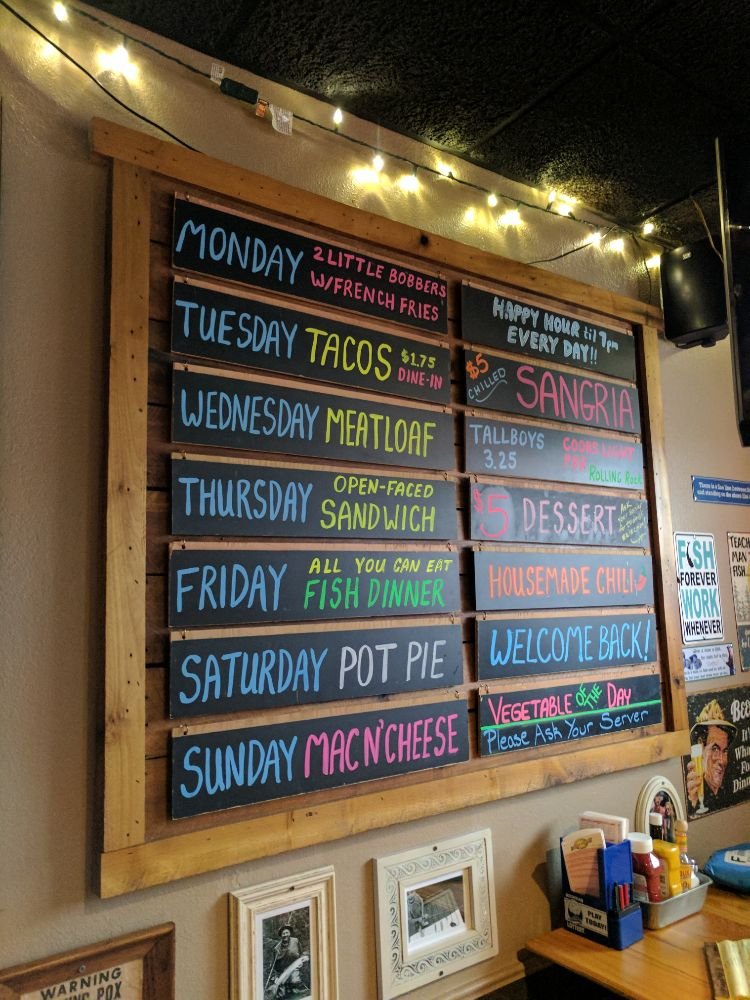 MONDAY 2 LITTLE BOBBERS
W/FRENCH FRIES
TUESDAY TACOS $1.75
DINE-IN
WEDNESDAY MEATLOAF
THURSDAY OPEN-FACED
SANDWICH
FRIDAY ALL YOU CAN EAT
FISH DINNER
SATURDAY POT PIE
SUNDAY MAC N' CHEESE
HAPPY HOUR til 7pm
EVERY DAY!!
$5
CHILLED SANGRIA
TALLBOYS COORS LIGHT
3.25 PBR
ROLLING ROCK
$5 DESSERT
HOUSEMADE CHILI
WELCOME BACK!
VEGETABLE OF THE DAY
Please Ask Your Server
There is a fine line between
and standing on the shore like
FISH
FOREVER
WORK
WHENEVER
TEACH
MAN
FISH
BEE
It's
Wh
Fo
Dinn
PLAY
TODAY!
LOTTERY
WARNING
POX